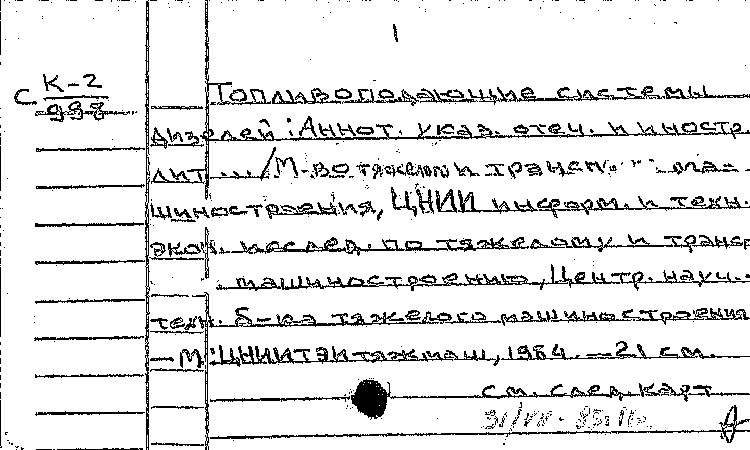 1
С К-2
998
Топливоподающие системы
дизелей : Аннот. указ. отеч. и иностр.
лит ... / М-во тяжелого и трансп. ма-
шиностроения, ЦНИИ информ. и техн.
экон. исслед. по тяжелому и трансп
. машиностроению, Центр. науч.-
техн. б-ка тяжелого машиностроения
— М : ЦНИИТЭИтяжмаш, 1984. — 21 см.
см. след. карт